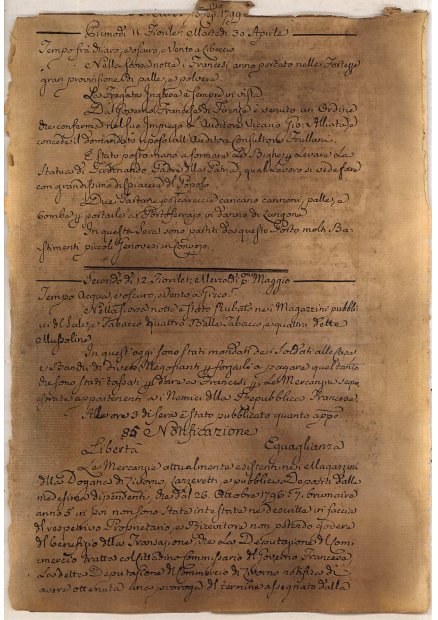 1799
Primodi 11 Fiorile; e Martedì 30 Aprile
Tempo frà chiaro, e oscuro, e Vento a Libeccio
Nella scorsa notte i Francesi anno portato nelle Fortezze
gran provvisione di palle, e polvere.
La Fregata Inglese è sempre in vista
Dal Governo Francese di Firenze è venuto un Ordine
che conferma nel suo Impiego l'Auditore Vicario Gio: Alliata, e
concede il domandato riposo all'Auditore Consultore Frullani.
È stato posto mano a formare le Bighe p levare la
Statua di Ferdinando Padre della Patria, qual Lavoro si vede fare
con grandissimo dispiacere del Popolo
Due Tartane pescareccie caricano cannoni, palle, e
bombe p portarle a Portoferrajo in danno di
In questa Sera sono partiti da questo Porto molti Ba-
stimenti piccoli Genovesi in Convojo.
Secondodì 12 Fiorile; Mercoledì p.mo Maggio
Tempo Acqua, e oscuro, e Vento a Greco.
Nella scorsa notte è stato Rubato nei Magazzini pubbli-
ci del Sale, e Tabacco quattro Balle Tabacco, e quattro dette
Mussoline
In quest'oggi sono stati mandati dei Soldati alle case
e Banchi di diversi Negozianti p forzarli a pagare quel tanto
che sono stati tassati p dare a Francesi p le Mercanzie seque-
strate appartenenti a i Nemici della Repubblica Francese.
Alle ore 3 di sera è stato pubblicato quanto app.o
85 Notificazione
Libertà Eguaglianza
Le Mercanzie attualmente esistenti nei Magazzini
della Dogana di Livorno, Lazzeretti, e pubblici Depositi dalle
medesime dipendenti, che dal 26. Ottobre 1796 5 brumaire
anno 5 in poi non sono state intestate nè descritte in faccia
del respettivo Proprietario, e Ricevitore non potendo godere
del benefizio della Transazione, che la Deputazione del Com-
mercio tratta col Cittadino Commissario del Governo Francese
La detta Deputazione del Commercio di Livorno notifica di
avere ottenuta una proroga del termine assegnato dalla